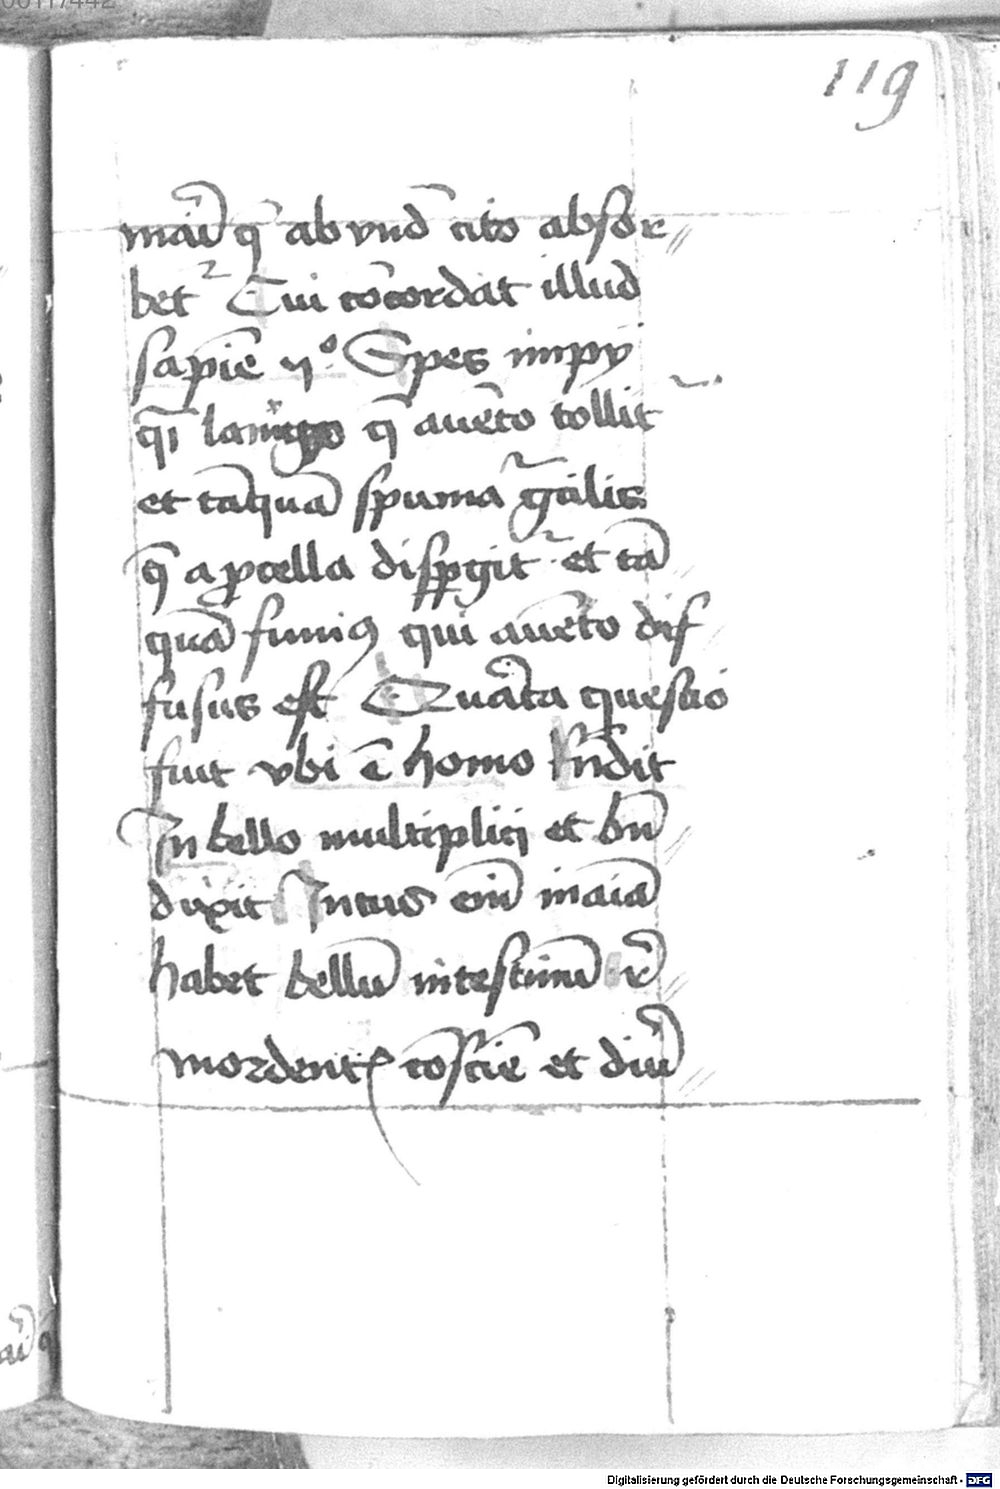 119
mai͂ q̄ ab vnd̄ cito absor
bet᷑ Cui co̅cordat illud
sapie̅ 11º Spes impy
q̄i lanugo q̄ aue̅to tollit᷑
et ta̅qua̅ spuma gͣcilis
q̄ a ꝓcella disꝑgit᷑ et ta̅
qua̅ fumiꝯ qui aue̅to dif
fusus est Quarta questio
fuit vbi e̅ homo Rn̅dit
In bello multiplici et bn̅
dixit Intus eni̅ in aia̅
habet bellu̅ intestinu̅ re̅
mordentꝭ co̅scie̅ et diu̅
Digitalisierung gefördert durch die Deutsche Forschungsgemeinschaft - DFG